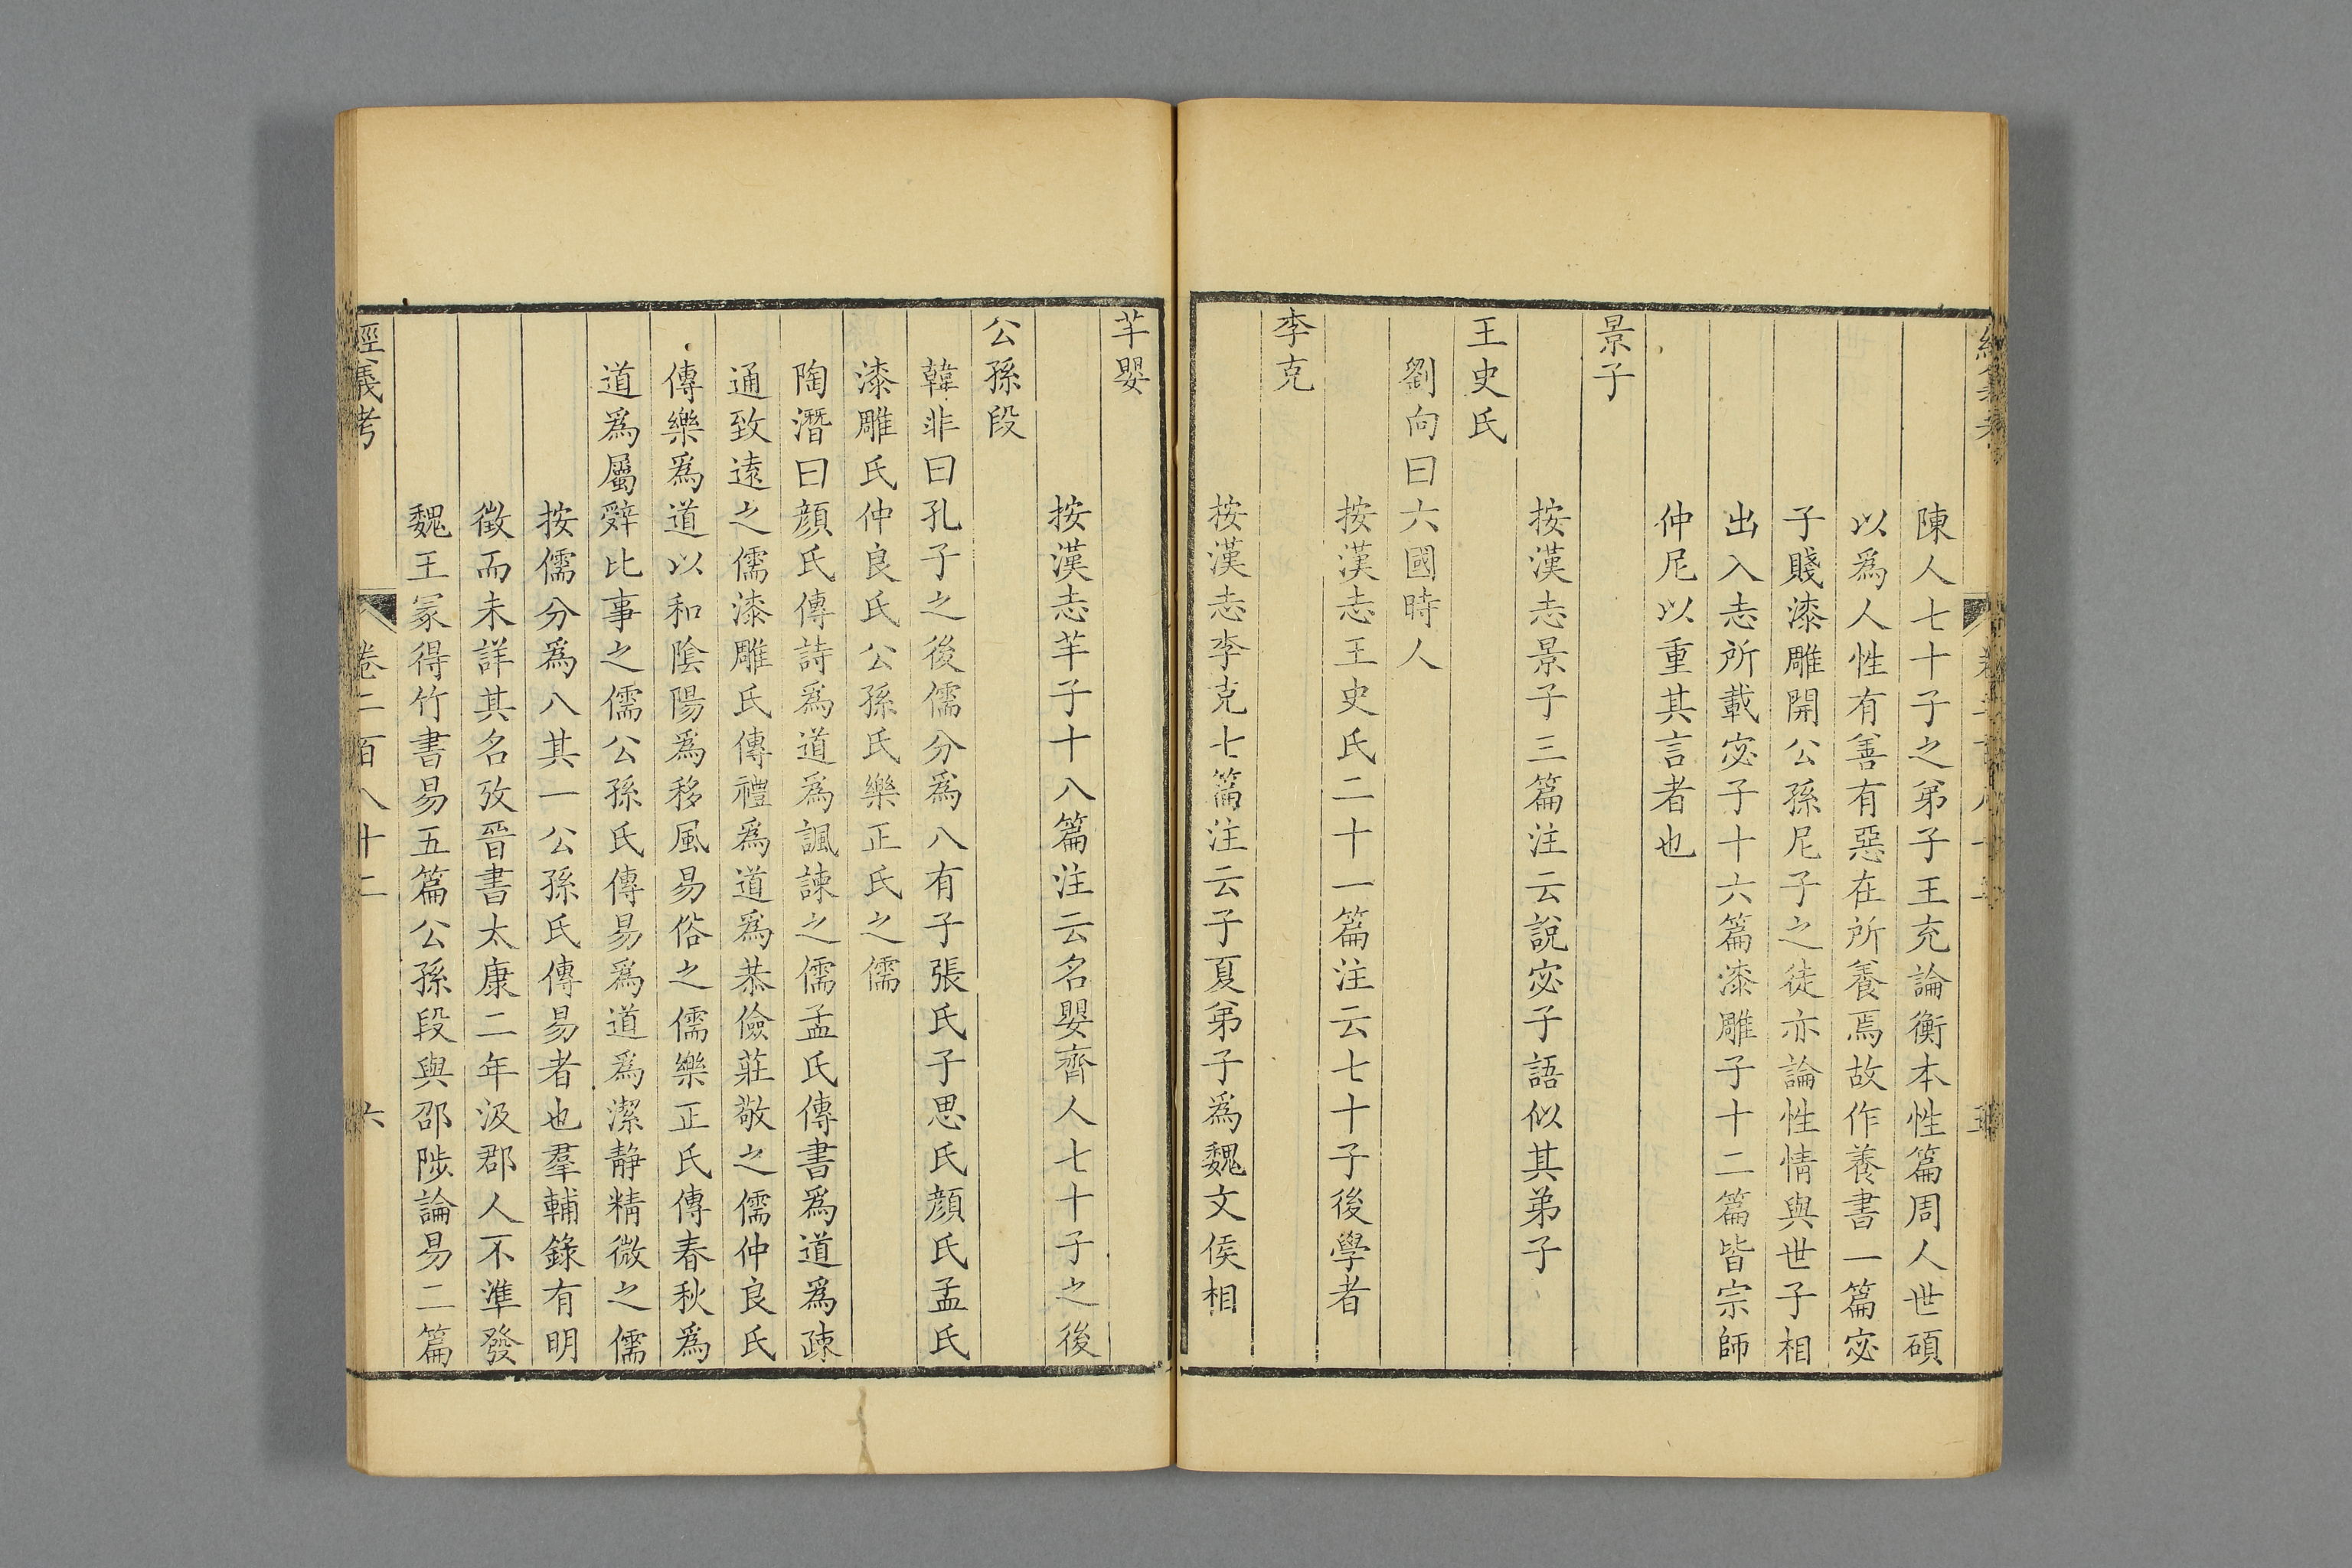 陳人七十子之弟子王充論衡本性篇周人世碩
以爲人性有善有惡在所養焉故作養書一篇宓
子賤漆雕開公孫尼子之徒亦論性情與世子相
出入志所載宓子十六篇漆雕子十二篇皆宗師
仲尼以重其言者也
景子
按漢志景子三篇注云說宓子語似其弟子
王史氏
劉向曰六國時人
按漢志王史氏二十一篇注云七十子後學者
李克
按漢志李克七篇注云子夏弟子爲魏文侯相
芉嬰
按漢志芉子十八篇注云名嬰齊人七十子之後
公孫段
韓非曰孔子之後儒分爲八有子張氏子思氏顔氏孟氏
漆雕氏仲良氏公孫氏樂正氏之儒
陶潛曰顔氏傳詩爲道爲諷諫之儒孟氏傳書爲道爲疎
通致遠之儒漆雕氏傳禮爲道爲恭儉莊敬之儒仲良氏
傳樂爲道以和陰陽爲移風易俗之儒樂正氏傳春秋爲
道爲屬辤比事之儒公孫氏傳易爲道爲潔靜精微之儒
按儒分爲八其一公孫氏傳易者也羣輔錄有明
徵而未詳其名攷晉書太康二年汲郡人不準發
魏王冡得竹書易五篇公孫段與邵陟論易二篇
經義考 卷二百八十二 六